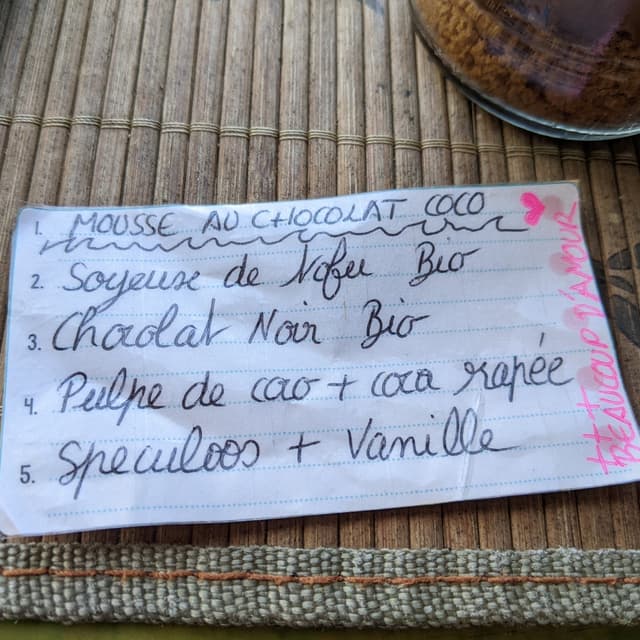 1. MOUSSE AU CHOCOLAT COCO
2. Soyeuse de Tofu Bio
3. Chocolat Noir Bio
4. Pulpe de coco + coco rapée
5. Speculoos + Vanille
++ BEAUCOUP D'AMOUR